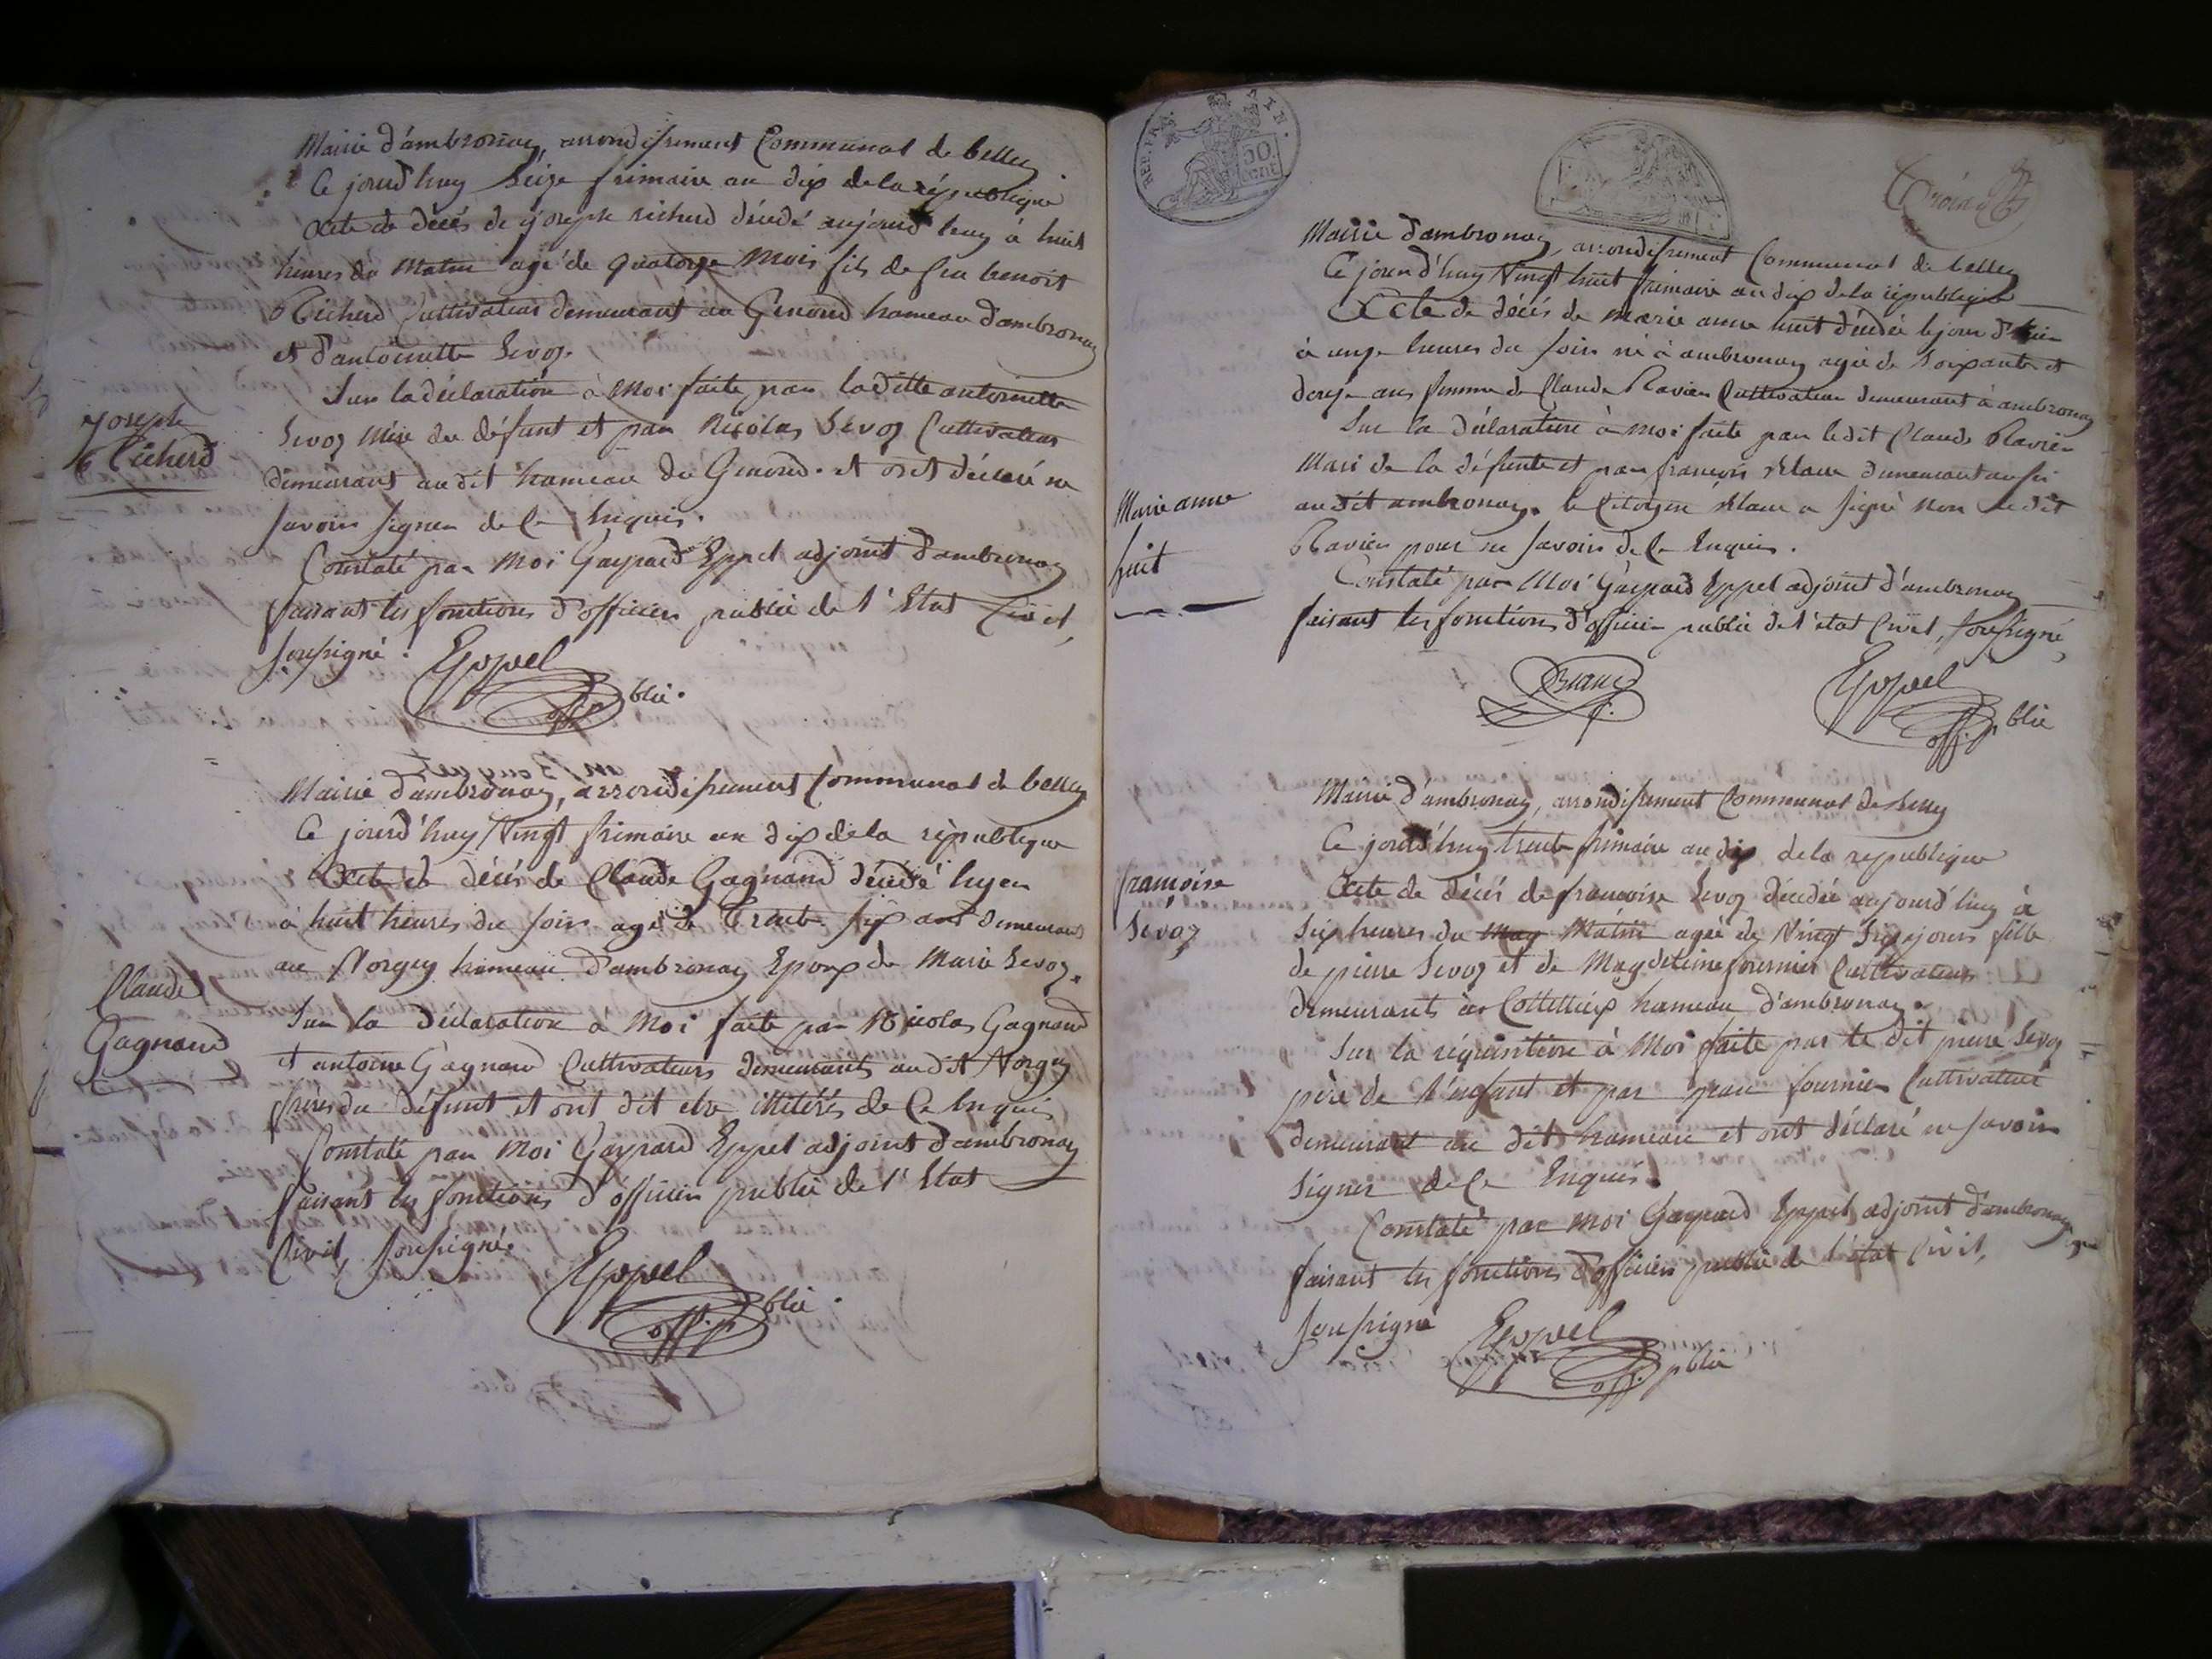 Mairie d'ambronay, arrondissement Communal de belley
Ce jourd'huy seize frimaire an dix de la république
Acte de décès de joseph richerd décedé aujourd'huy à huit
heures du Matin agé de quatorze Mois fils de feu benoit
Richerd Cultivateur demeurant au Genoud hameau d'ambronay
et d'antoinette Sevoz.
Sur la déclaration à Moi faite par laditte antoinette
Sevoz Mère du défunt et par Nicolas Sevoz Cultivateur
demeurant au dit hameau du Genoud. et ont déclaré ne
savoir signer de ce Enquis.
Constaté par Moi Gaspard Eppel adjoint d'ambronay
faisant les fonctions d'officier public de l'Etat Civil,
soussigné.
Eppel
off. p blic.
joseph
Richerd
Mairie d'ambronay, arrondissement Communal de belley
Ce jourd'huy Vingt frimaire an dix de la rèpublique
Acte de décès de Claude Gagnand décedé hyer
à huit heures du soir agé de Trente six ans demeurant
au Vorgey hameau d'ambronay Epoux de Marie Sevoz.
Sur la déclaration à Moi faite par Nicolas Gagnand
et antoine Gagnand Cultivateurs demeurants au dit Vorgey
frères du défunt et ont dit etre illitérés de Ce Enquis
Constaté par Moi Gaspard Eppel adjoint d'ambronay
faisant les fonctions d'officier public de l'Etat
Civil, soussigné.
Eppel
off. p blic.
Claude
Gagnand
REP. FRA.
50
CENT
Mairie d'ambronay, arrondissement Communal de belley
Ce jourd'huy Vingt huit frimaire an dix de la république
Acte de décès de Marie anne huit décedée le jour d'hier
à onze heures du soir né à ambronay agée de soixante et
douze ans femme de Claude Ravier Cultivateur demeurant à ambronay
Sur la déclaration à moi faite par le dit Claude Ravier
Mari de la défunte et par françois demeurant aussi
au dit ambronay. le Citoyen a signé non le dit
Ravier pour ne savoir de Ce Enquis.
Constaté par Moi Gaspard Eppel adjoint d'ambronay
faisant les fonctions d'officier public de l'état Civil, soussigné
Eppel
off. p blic
Marie anne
huit
Mairie d'ambronay, arrondissement Communal de belley
Ce jourd'huy trente frimaire an dix de la republique
Acte de décès de francoise Sevoz décedée aujourd'huy à
six heures du Matin agée de Vingt jours fille
de pierre Sevoz et de Magdeleine fournier Cultivateurs
demeurants à Cottellieux hameau d'ambronay.
Sur la réquisition à Moi faite par le dit pierre Sevoz
père de l'enfant et par fournier Cultivateur
demeurant au dit hameau et ont déclaré ne savoir
signer de Ce Enquis.
Constaté par moi Gaspard Eppel adjoint d'ambronay
faisant les fonctions d'officier public de l'état Civil,
soussigné
Eppel
off. p blic
francoise
Sevoz